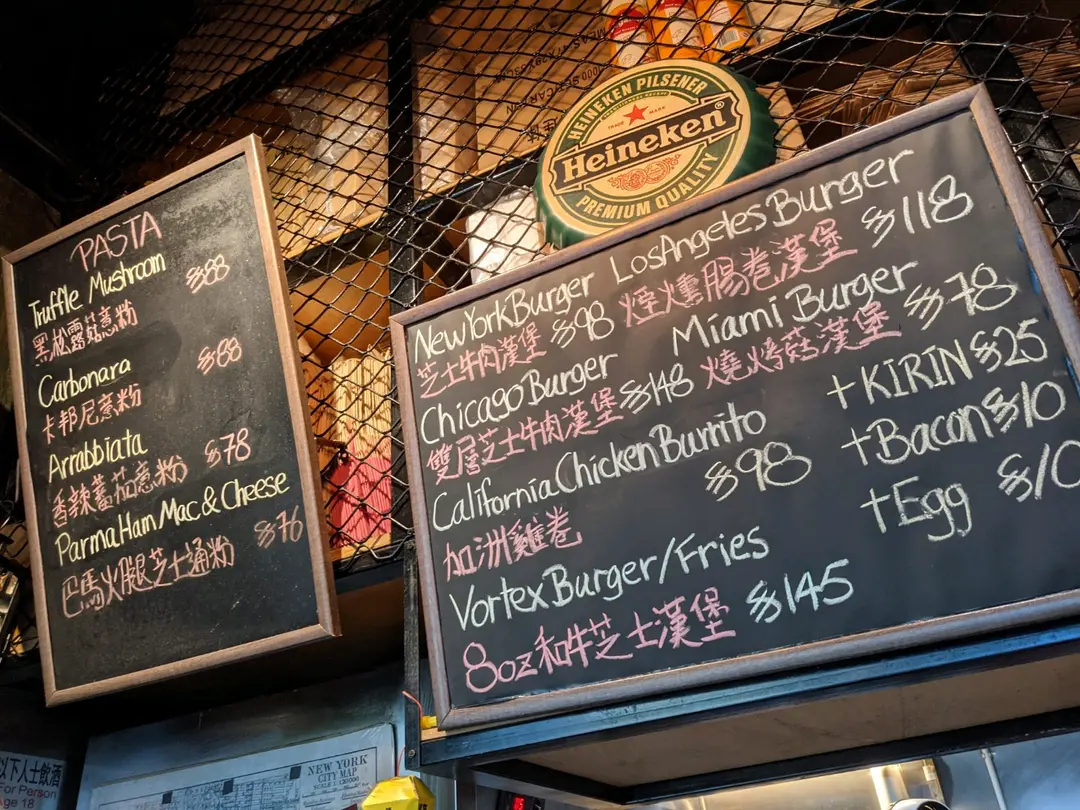 PASTA
Truffle Mushroom $88
黑松露菇意粉
Carbonara $88
卡邦尼意粉
Arrabbiata $78
香辣蕃茄意粉
Parma Ham Mac & Cheese
巴馬火腿芝士通粉 $76
HEINEKEN PILSENER
TRADE MARK
Heineken
PREMIUM QUALITY
New York Burger
芝士牛肉漢堡 $98
Los Angeles Burger $118
煙燻腸卷漢堡
Chicago Burger
雙層芝士牛肉漢堡 $148
Miami Burger $78
燒烤菇漢堡
California Chicken Burrito $98
加洲雞卷
Vortex Burger/Fries
8oz和牛芝士漢堡 $145
+KIRIN $25
+Bacon $10
+Egg $10
NEW YORK
CITY MAP
以下人士飲酒
For Person
Age 18